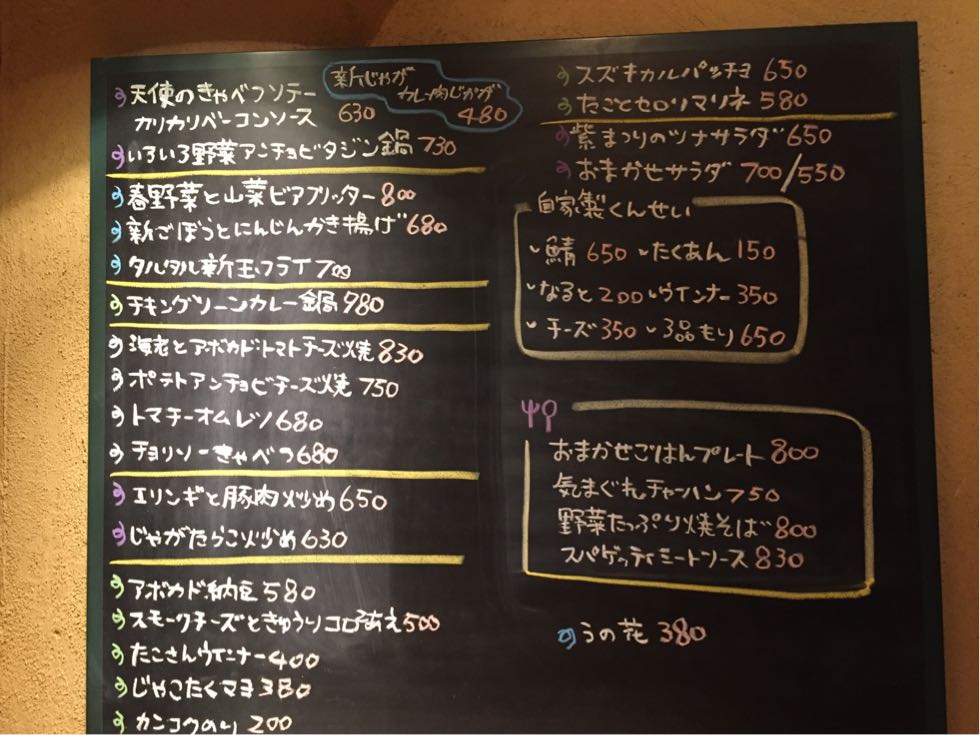 天使のきゃべつソテー
カリカリベーコンソース 630
新じゃが
カレー肉じゃが
480
いろいろ野菜アンチョビタジン鍋 730
春野菜と山菜ビアフリッター 800
新ごぼうとにんじんかき揚げ 680
タルタル新玉フライ 700
チキングリーンカレー鍋 980
海老とアボカド・トマトチーズ焼 830
ポテトアンチョビチーズ焼 750
トマチーオムレツ 680
チョリソーきゃべつ 680
エリンギと豚肉炒め 650
じゃがたらこ炒め 630
アボカド納豆 580
スモークチーズときゅうりコロコロあえ 500
たこさんウインナー 400
じゃこたくマヨ 380
カンコクのり 200
スズキカルパッチョ 650
たことセロリマリネ 580
紫まつりのツナサラダ 650
おまかせサラダ 700/550
自家製くんせい
鯖 650 たくあん 150
なると 200 ウインナー 350
チーズ 350 3品もり 650
おまかせごはんプレート 800
気まぐれチャーハン 750
野菜たっぷり焼そば 800
スパゲッティミートソース 830
うの花 380